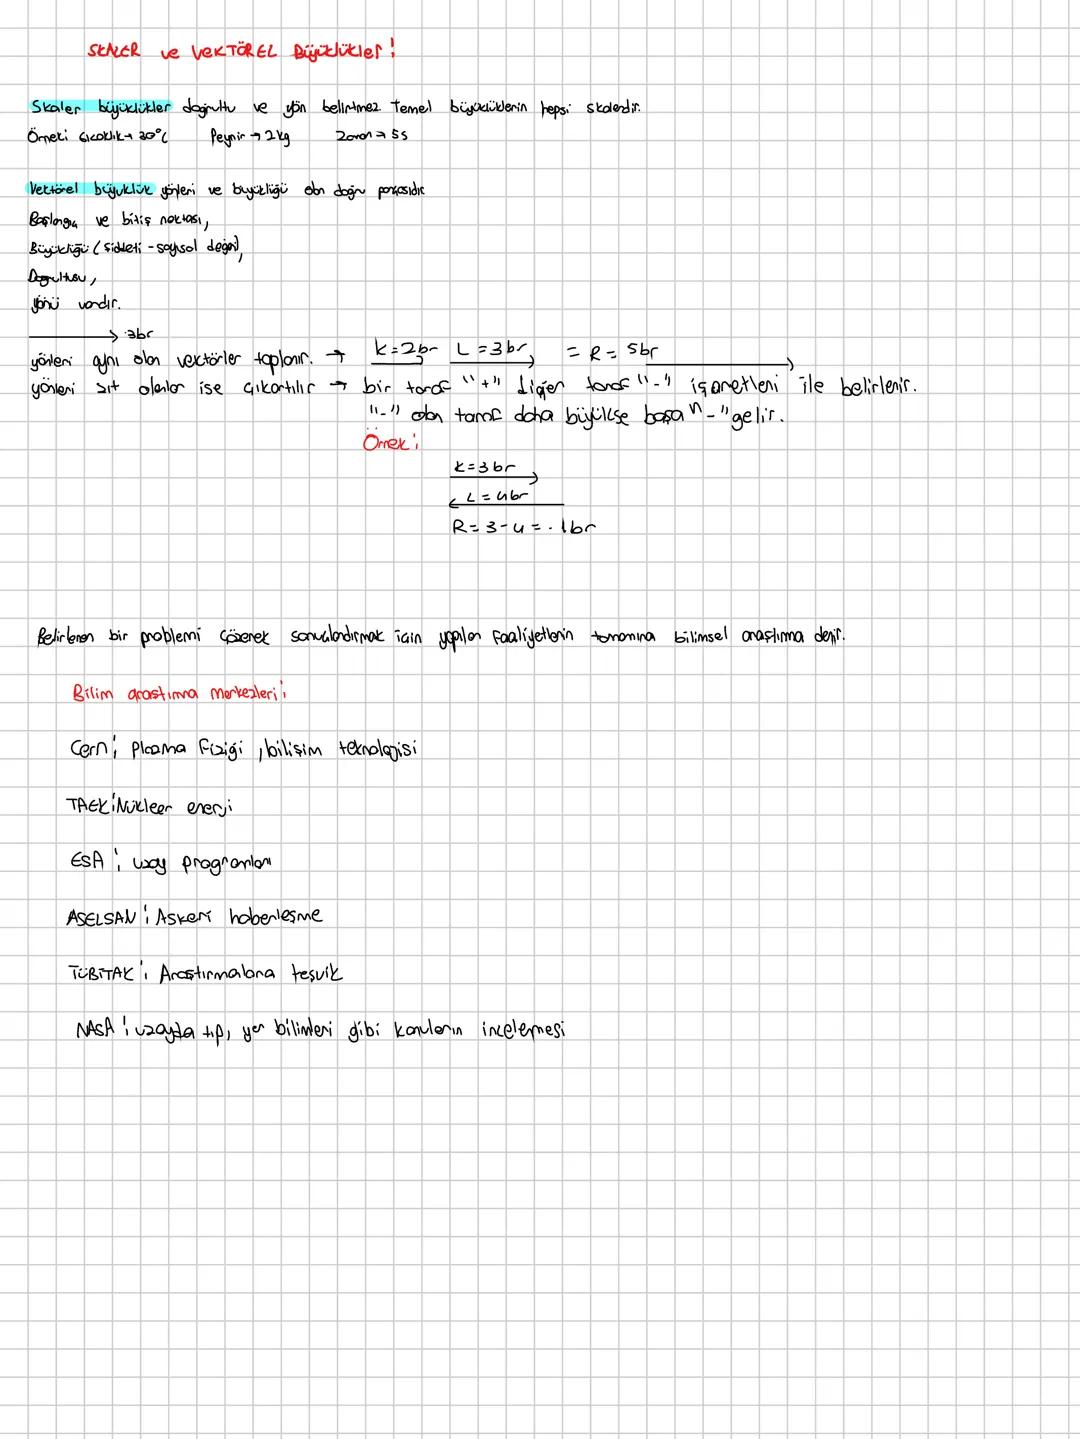 SKALER ve VEKTÖREL Büyüklükler!
Skaler büyüklükler doğrultu ve yön belirtmez Temel büyüklüklerin hepsi skalerdir.
Örnek: sıcaklık→ 30°C Peynir → 2kg Zaman → 5s
Vektörel büyüklük yönleri ve büyüklüğü olan doğru parçasıdır
Başlangıç ve bitiş noktası,
Büyüklüğü (şiddeti - sayısal değeri),
Doğrultusu,
yönü vardır.
3br
yönleri aynı olan vektörler toplanır. → K=2br L=3br = R= 5br
yönleri zıt olanlar ise çıkartılır → bir taraf "+" diğer taraf "-" işaretleri ile belirlenir.
"-" olan taraf daha büyükse başa "-" gelir.
Örnek:
K=3br
L=4br
R=3-4=-1br
Belirlenen bir problemi çözerek sonuçlandırmak için yapılan faaliyetlerin tamamına bilimsel araştırma denir.
Bilim araştırma merkezleri:
Cern: Plazma fiziği, bilişim teknolojisi
TAEK: Nükleer enerji
ESA: uzay programları
ASELSAN: Askeri haberleşme
TÜBİTAK: Araştırmalara teşvik
NASA: uzayda tıp, yer bilimleri gibi konuların incelemesi